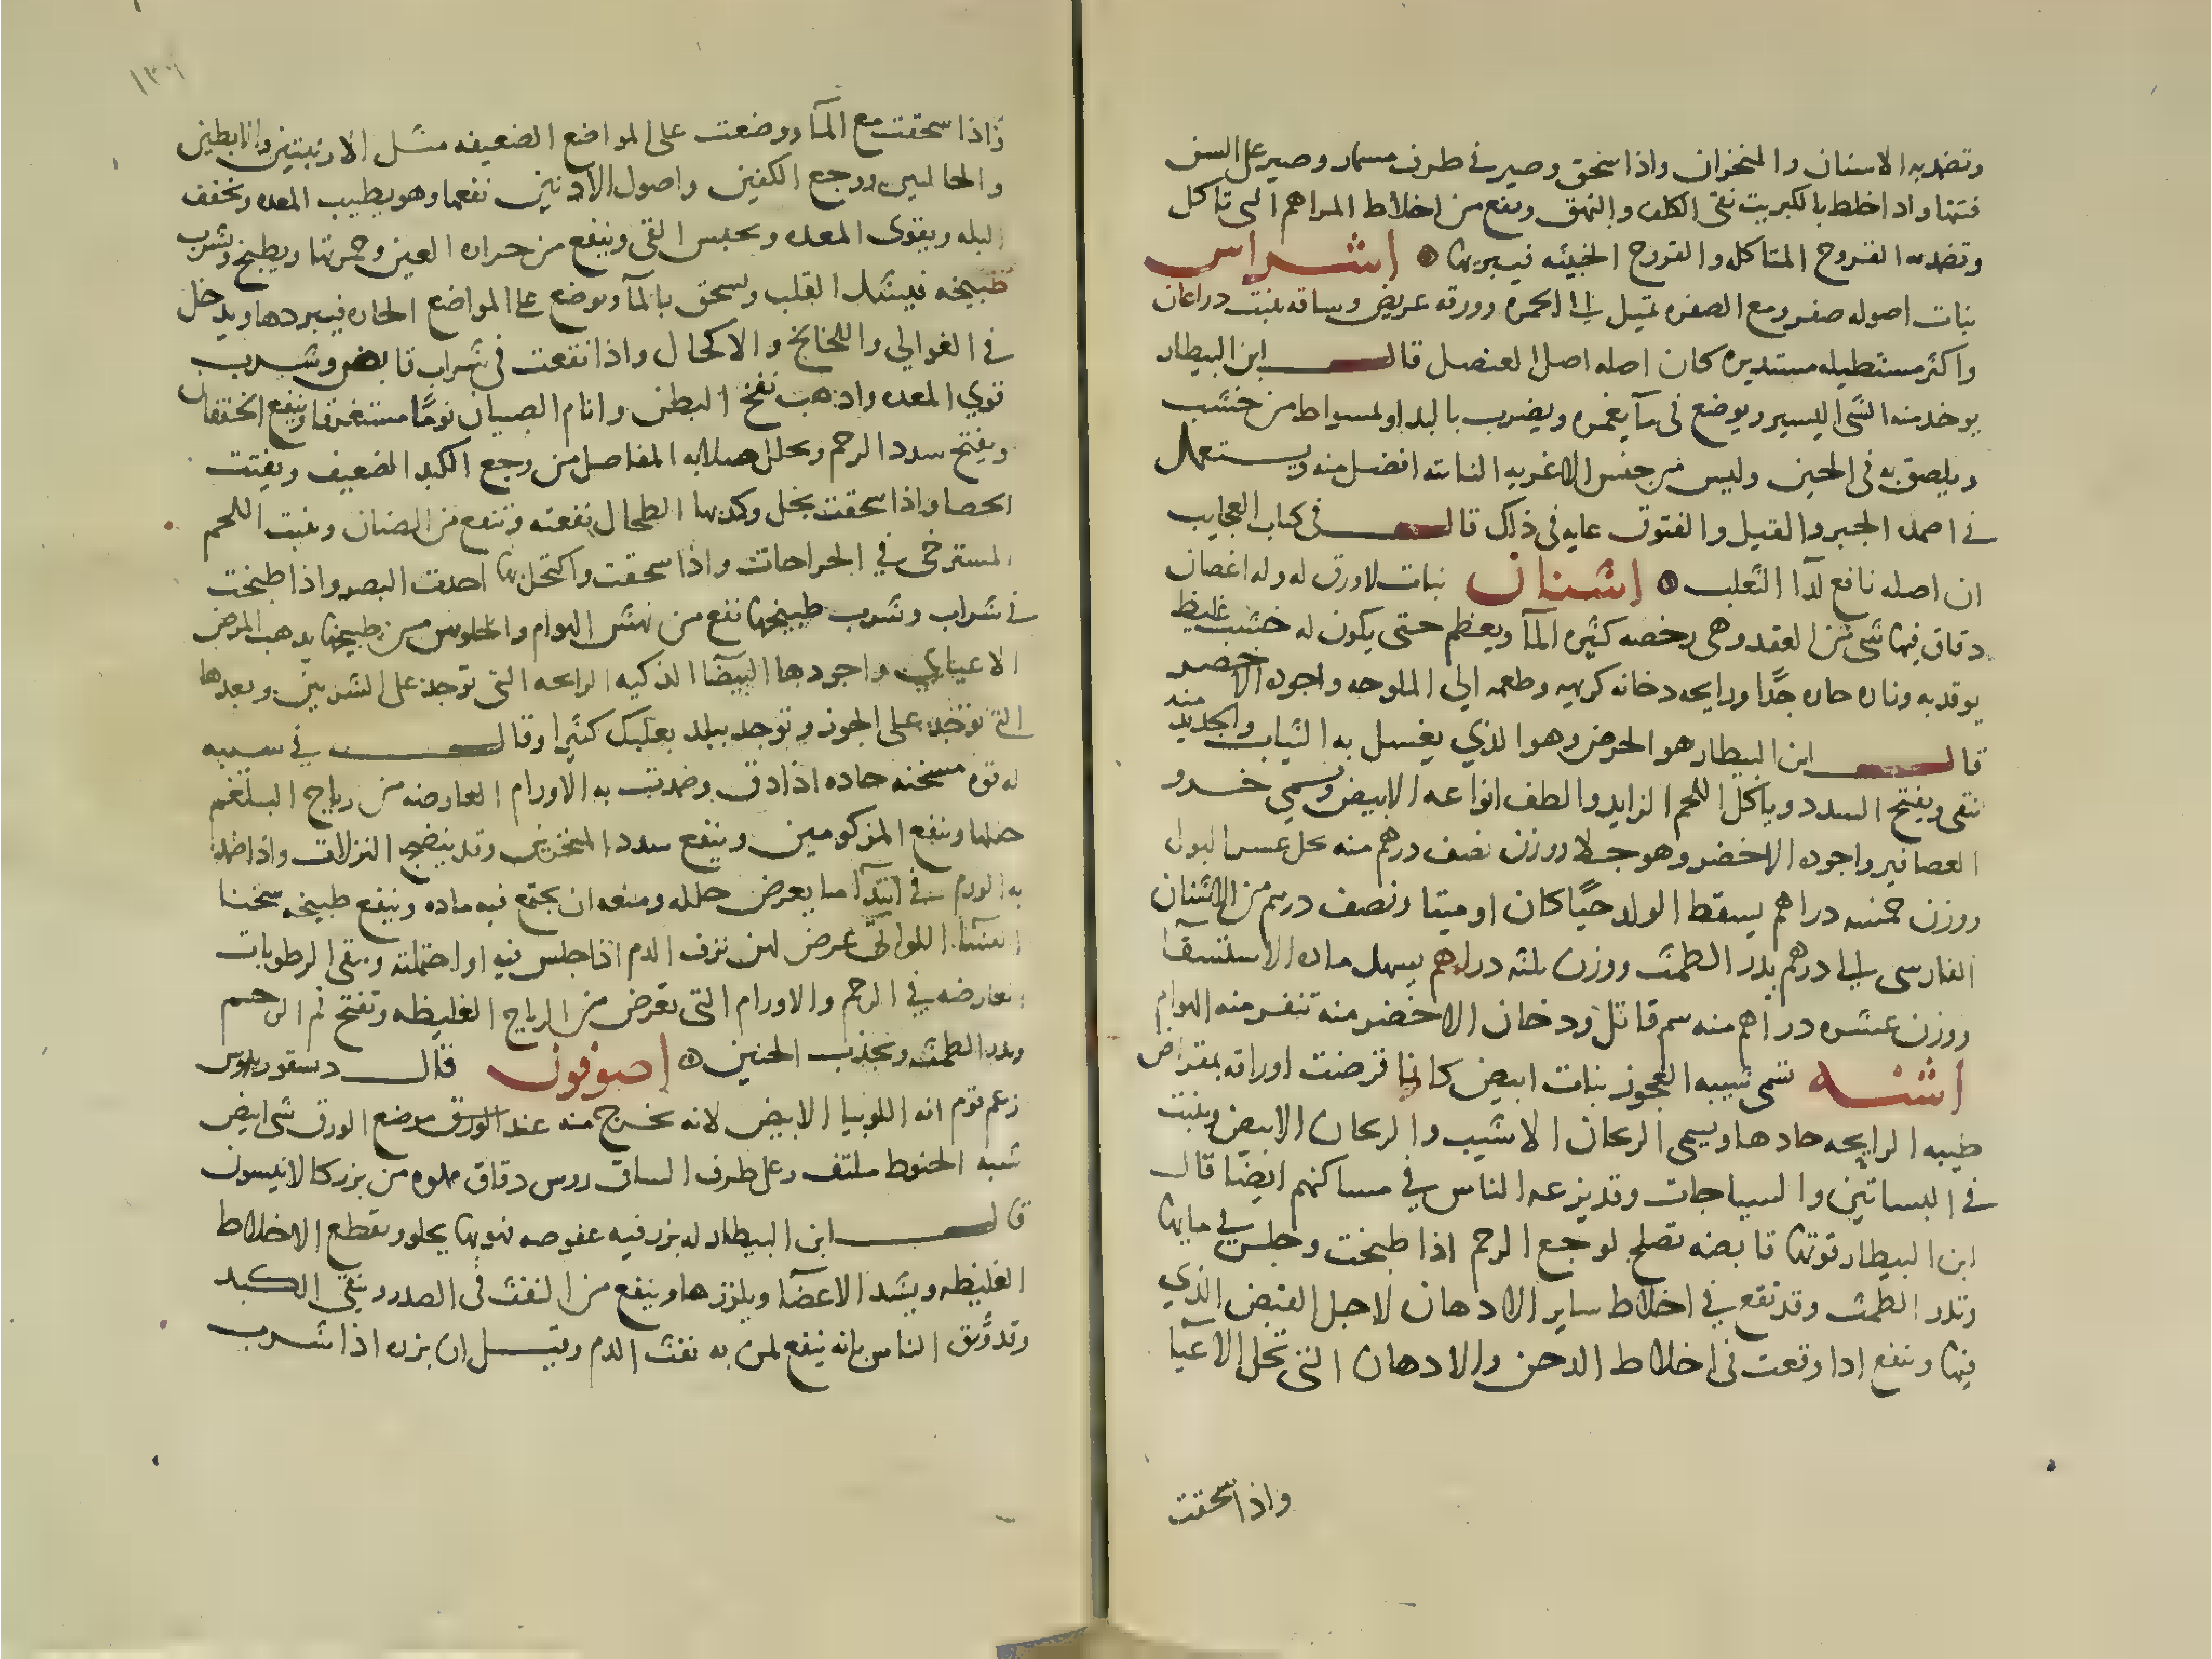 وتضمد به الاسنان والمنخوان واذا سحق وصير في طرف مسمار وصير على السن
فتتها واذا خلط بالكبريت نقى الكلف والبهق وينفع من اخلاط المراهم التي تاكل
وتضمد به القروح المتاكله والقروح الخبيثه فيبريها اشراس
نبات اصوله صفر ومع الصفره تميل الى الحمره وورقه عريض وساقه ينبت دراعان
واكثر مستطيله مستديره كان اصله اصل العنصل قال ابن البيطار
يوخذ منه الشي اليسير ويوضع في مآ يغمره ويضرب باليد او بمسواط من خشب
ويلصق به في الحين وليس من جنس الاغريه النباته افضل منه ويستعمل
في اضمده الجبر والقيل والفتوق غايه في ذلك قال في كتاب العجايب
ان اصله نافع لدآ الثعلب اشنان نبات لا ورق له وله اغصان
دقاق فيها شي من العقد وهي رخصه كثيره المآ ويعظم حتى يكون له خشب غليظ
يوقد به وناره حاره جدًا ورايحه دخانه كريهه وطعمه الي الملوحه واجوده الاخضر
قال ابن البيطار هو الحرض وهو الذي يغسل به الثياب والجديد منه
نقى ويفتح السدد وياكل اللحم الزايد والطف انواعه الابيض ويسمي خرو
العصافير واجوده الاخضر وهو جلا ووزن نصف درهم منه يحل عسر البول
ووزن خمسه دراهم يسقط الولد حيًا كان او ميتا ونصف درهم من الاشنان
الفارسي الي درهم يدر الطمث ووزن ثلثه دراهم يسهل ماده الاستسقآ
ووزن عشره دراهم منه سم قاتل ودخان الاخضر منه تنفر منه الهوام
اشنه تسمى شيبه العجوز نبات ابيض كانما قرضت اوراقه بمقراض
طيبه الرايحه حادها ويسمى الريحان الاشيب والريحان الابيض وينبت
في البساتين والسياجات وقد يزرعه الناس في مساكنهم ايضًا قال
ابن البيطار قوتها قابضه تصلح لوجع الرحم اذا طبخت وجلس في مايها
وتدر الطمث وقد تقع في اخلاط ساير الادهان لاجل القبض الذي
فيها وينفع اذا وقعت في اخلاط الدخن والادهان التي تحل الاعيآ
واذا سحقت
١٣٦
واذا سحقت مع المآ ووضعت على المواضع الضعيفه مثل الاربيتين والابطين
والحالبين ووجع الكفين واصول الاذنين نفعها وهو يطيب المعده ويخفف
البله ويقوى المعده ويحبس القى وينفع من حراره العين وحمرتها ويطبخ ويشرب
طبيخه فيشد القلب ويسحق بالمآ ويوضع على المواضع الحاره فيبردها ويدخل
في الغوالي واللخالخ والاكحال واذا نقعت في شراب قابض وشرب
قوي المعده واذهب نفخ البطن وانام الصبيان نومًا مستغرقا وينفع الخفقان
ويفتح سدد الرحم ويحلل صلابه المفاصل من وجع الكبد الضعيف ويفتت
الحصا واذا سحقت بخل وكمد بها الطحال نفعته وتنفع من الصنان وينبت اللحم
المسترخى في الجراحات واذا سحقت واكتحل بها احدت البصر واذا طبخت
في شراب وشرب طبيخها نفع من نهش الهوام والجلوس في طبيخها يذهب المرض
الاعيايي واجودها البيضا الذكيه الرايحه التي توجد على الشربين وبعدها
التي توجد على الجوز وتوجد ببلد بعلبك كثيرا وقال في سيبه
له قوه مسخنه حاده اذا دق وضمدت به الاورام العارضه من رياح البلغم
حللها ونفع المزكومين وينفع سدد المنخرين وقد ينضج النزلات واذا ضمد
به الورم في ابتدآ ما يعرض حلله ومنعه ان يجتمع فيه ماده وينفع طبيخه سخنا
النسآ اللواتي عرض لهن نزف الدم اذا جلس فيه او احتملته وينقى الرطوبات
العارضه في الرحم والاورام التي تعرض من الرياح الغليظه وتفتح فم الرحم
ويدر الطمث ويجذب الجنين اصوفون قال دسقوريدوس
زعم قوم انه اللوبيا الابيض لانه يخرج منه عند الورق موضع الورق شي ابيض
شبه الخيوط ملتف وعلى طرف الساق روس دقاق مملوه من بزر كالانيسون
قال ابن البيطار له بزر فيه عفوصه فهو بها يجلو ويقطع الاخلاط
الغليظه ويشد الاعضآ ويلززها وينفع من النفث في الصدر وينقى الكبد
وقد وثق الناس بانه ينفع لمن به نفث الدم وقيل ان بزره اذا شرب